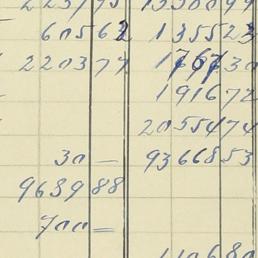 60562 135523
220377 176730
191672
2055474
30 — 9366853
968988
700 —